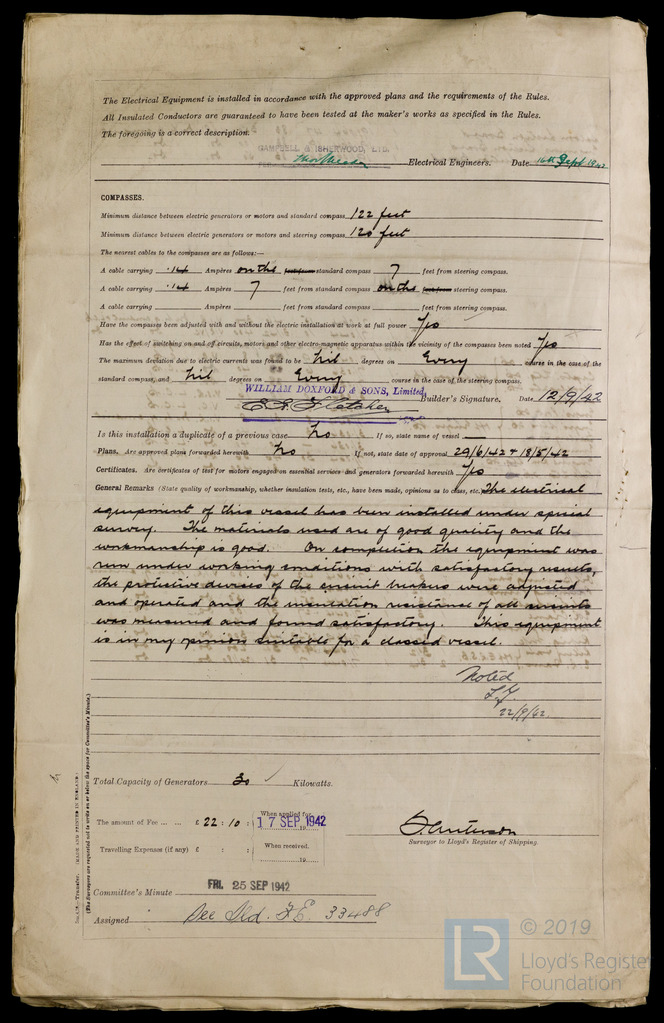 The Electrical Equipment is installed in accordance with the approved plans and the requirements of the Rules.
All Insulated Conductors are guaranteed to have been tested at the maker's works as specified in the Rules.
The foregoing is a correct description.
CAMPBELL & ISHERWOOD, LTD.
Electrical Engineers. Date 16th Sept 1942
COMPASSES.
Minimum distance between electric generators or motors and standard compass 122 feet
Minimum distance between electric generators or motors and steering compass 120 feet
The nearest cables to the compasses are as follows:—
A cable carrying .14 Ampères on the feet from standard compass 7 feet from steering compass.
A cable carrying .14 Ampères 7 feet from standard compass on the feet from steering compass.
A cable carrying Ampères feet from standard compass feet from steering compass.
Have the compasses been adjusted with and without the electric installation at work at full power Yes
Has the effect of switching on and off circuits, motors and other electro-magnetic apparatus within the vicinity of the compasses been noted Yes
The maximum deviation due to electric currents was found to be Nil degrees on Every course in the case of the
standard compass, and Nil degrees on Every course in the case of the steering compass.
WILLIAM DOXFORD & SONS, Limited
E. J. Fletcher Builder's Signature. Date 12/9/42
Is this installation a duplicate of a previous case No If so, state name of vessel
Plans. Are approved plans forwarded herewith No If not, state date of approval 29/6/42 + 18/5/42
Certificates. Are certificates of test for motors engaged on essential services and generators forwarded herewith Yes
General Remarks (State quality of workmanship, whether insulation tests, etc., have been made, opinions as to class, etc. The electrical
equipment of this vessel has been installed under special
survey. The materials used are of good quality and the
workmanship is good. On completion the equipment was
run under working conditions with satisfactory results,
the protective devices of the circuit breakers were adjusted
and operated and the insulation resistance of all circuits
was measured and found satisfactory. This equipment
is in my opinion suitable for a classed vessel.
Noted
22/9/42
Total Capacity of Generators 30 Kilowatts.
The amount of Fee £ 22 : 10 : When applied for 17 SEP 1942 19
Travelling Expenses (if any) £ : : When received. 19
Surveyor to Lloyd's Register of Shipping.
Committee's Minute FRI. 25 SEP 1942
Assigned See Sld. F.E. 33488
(MADE AND PRINTED IN ENGLAND.)
(The Surveyors are requested not to write on or below the space for Committee's Minute.)
LR © 2019
Lloyd's Register
Foundation